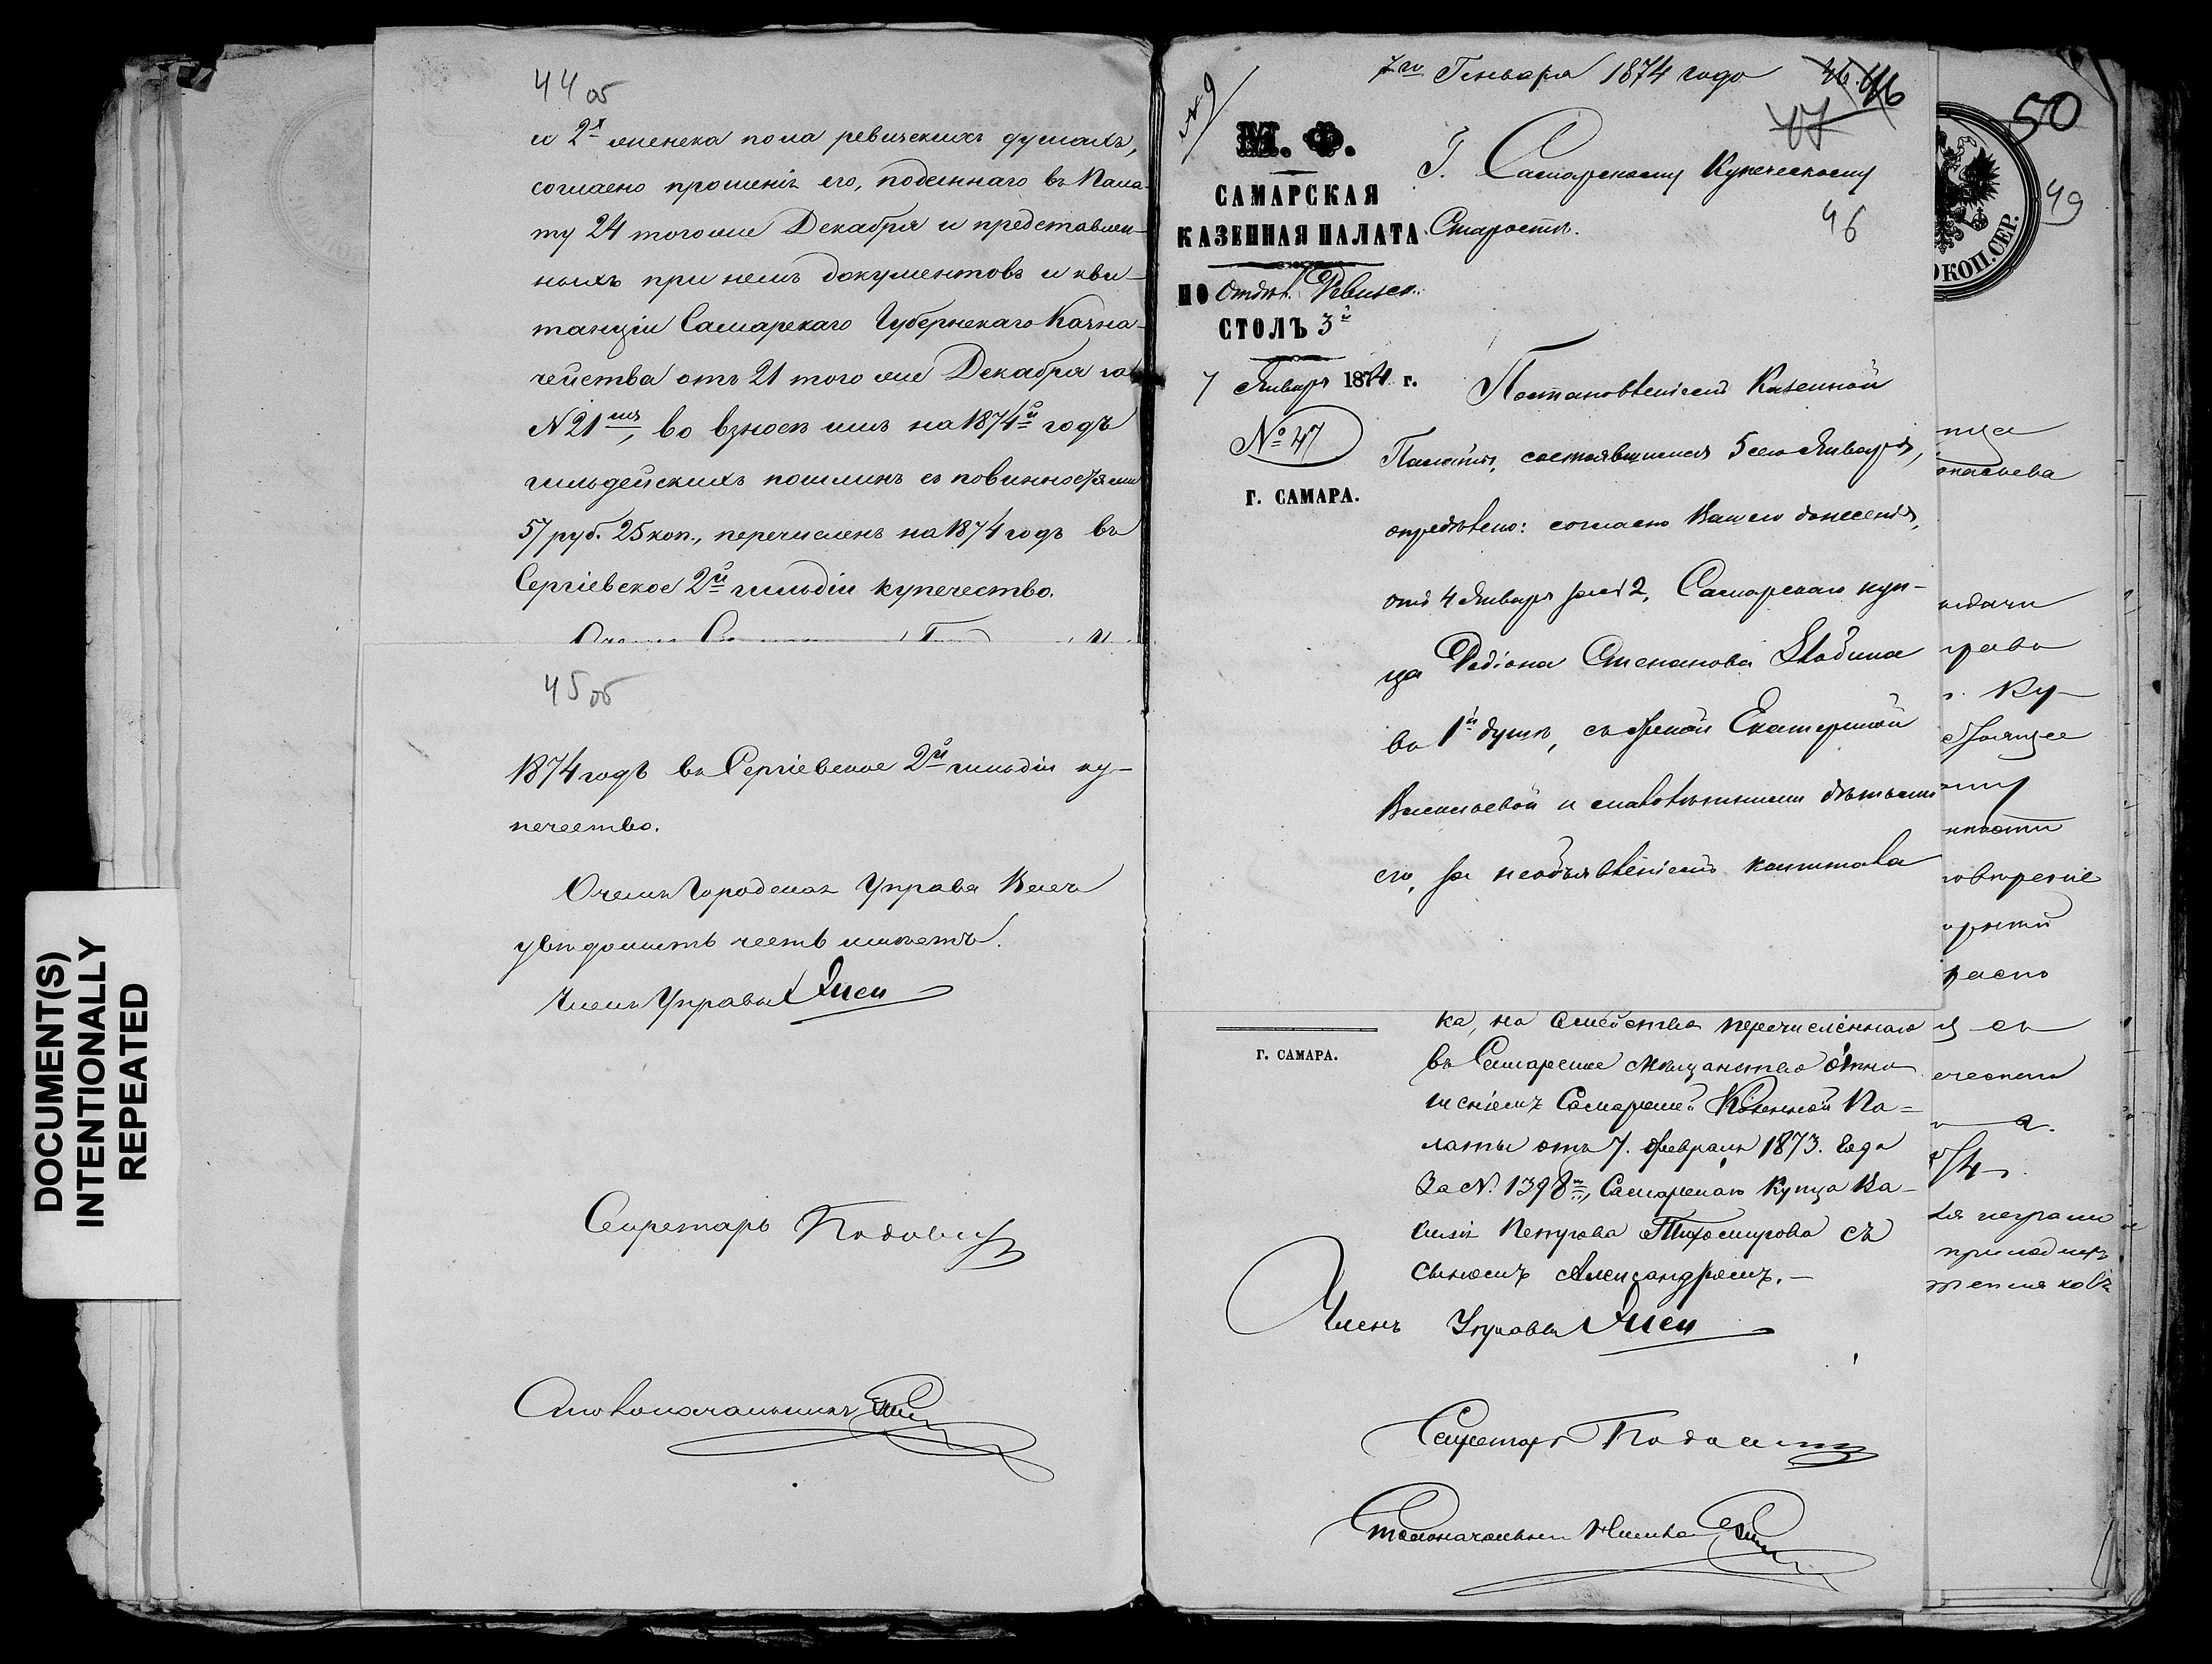 DOCUMENT(S)
INTENTIONALLY
REPEATED
44 об
и 2х женска пола ревизскихъ душахъ,
согласно прошенія его, поданнаго въ Пала-
ту 24 того же Декабря и представлен-
ныхъ при немъ документовъ и кви-
танціи Самарскаго Губернскаго Казна-
чейства отъ 21 того же Декабря за
N 21мъ, во взносѣ имъ на 1874й годъ
гильдейскихъ пошлинъ съ повинностями
57 руб. 25 коп., перечисленъ на 1874 годъ въ
Сергіевское 2й гильдіи купечество.
45 об
1874 годъ въ Сергіевское 2й гильдіи ку-
печество.
О чемъ Городская Управа Васъ
увѣдомить честь имѣетъ.
Членъ Управы
Секретарь
Столоначальникъ
7го Генваря 1874 года
46. 46
47
№ 9
М. Ф.
САМАРСКАЯ
КАЗЕННАЯ ПАЛАТА
ПО Отдѣл. Ревизск.
СТОЛЪ 3й
7 Января 1874 г.
№ 47
Г. САМАРА.
Г. Самарскому Купеческому
Старостѣ.
46
Постановленіемъ Казенной
Палаты, состоявшимся 5 сего Января,
опредѣлено: согласно Вашего донесенія,
отъ 4 Января за № 2, Самарскаго куп-
ца Родіона Степанова
въ 1й душѣ, съ женой Екатериной
Васильевой и малолѣтними дѣтьми
его, за необъявленіемъ капитала
Г. САМАРА.
ка, на семейство перечисленнаго
въ Самарское мѣщанство отно
шеніемъ Самарской Казенной Па=
латы отъ 7. Февраля 1873. года
За №. 1398м, Самарскаго Купца Ва-
силія Петрова Тихомирова съ
сыномъ Александромъ.-
Членъ Управы
Секретарь
Столоначальникъ
50
49
КОП.СЕР.
нца
рава
г. Ку-